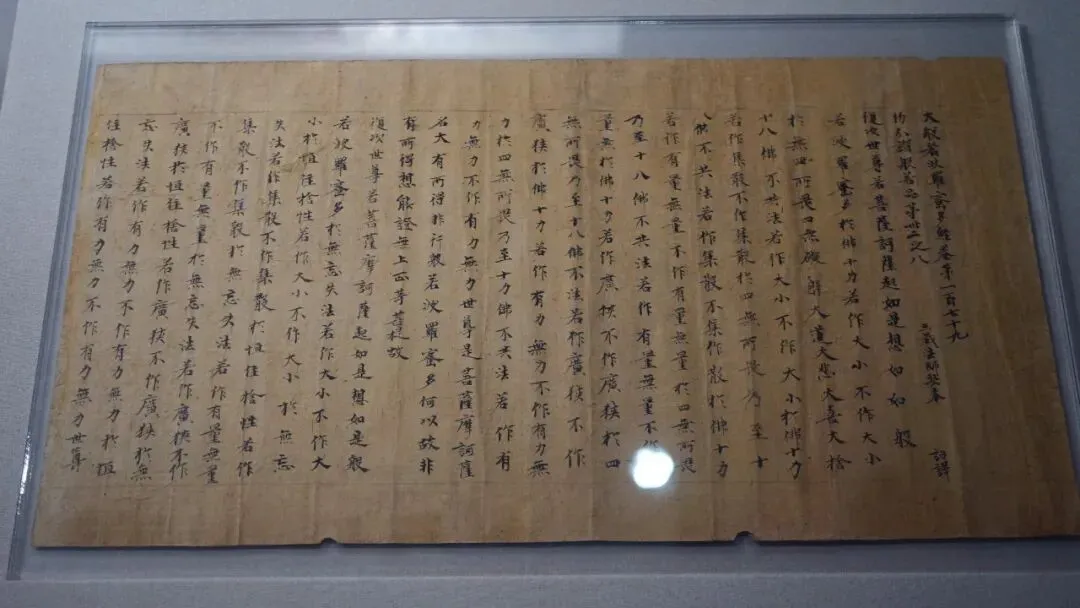 大般若波羅蜜多經卷第一百七十九
初分讚般若品第卅二之八
三藏法師玄奘奉 詔譯
復次世尊若菩薩訶薩起如是想如如般
若波羅蜜多於佛十力若作大小不作大小
於無四所畏四無礙解大慈大悲大喜大捨
十八佛不共法若作大小不作大小於佛十力
若作集散不作集散於四無所畏乃至十
八佛不共法若作集散不集作散於佛十力
若作有量無量不作有量無量於四無所畏
乃至十八佛不共法若作有量無量不作
量無於佛十力若作廣狹不作廣狹於四
無所畏乃至十八佛不法若作廣狹不作
廣狹於佛十力若作有力無力不作有力無
力於四無所畏乃至十力佛不共法若作有
力無力不作有力無力世尊是菩薩摩訶薩
名大有所得非行般若波羅蜜多何以故非
有所得想能證無上正等菩提故
復次世尊若菩薩摩訶薩起如是想如是般
若波羅蜜多於無忘失法若作大小不作大
小於恒住捨性若作大小不作大小於無忘
失法若作集散不作集散於恒住捨性若作
集散不作集散於無忘失法若作有量無量
不作有量無量於無忘失法若作廣狹不作
廣狹於恒住捨性若作廣狹不作廣狹於無
忘失法若作有力無力不作有力無力於恒
住捨性若作有力無力不作有力無力世尊